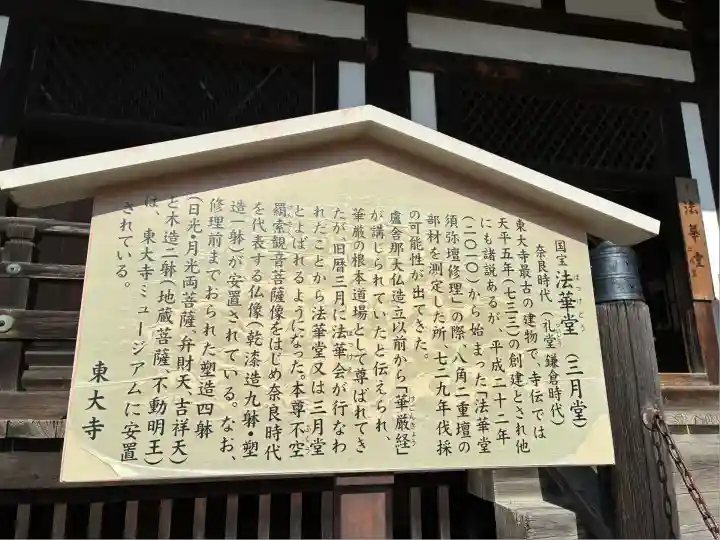 国宝 法華堂(三月堂)
ほっけどう
奈良時代(礼堂 鎌倉時代)
東大寺最古の建物で、寺伝では
天平五年(七三三)の創建とされ他
にも諸説あるが、平成二十二年
(二〇一〇)から始まった「法華堂
須弥壇修理」の際、八角二重壇の
部材を測定した所、七二九年伐採
の可能性が出てきた。
盧舎那大仏造立以前から「華厳経」
けごんきょう
が講じられていたと伝えられ、
華厳の根本道場として尊ばれてき
たが、旧暦三月に法華会が行なわ
れたことから法華堂又は三月堂
とよばれるようになった。本尊不空
羂索観音菩薩像をはじめ奈良時代
を代表する仏像(乾漆造九躰・塑
造一躰)が安置されている。なお、
修理前までおられた塑造四躰
(日光・月光両菩薩・弁財天・吉祥天)
と木造二躰(地蔵菩薩、不動明王)
は、東大寺ミュージアムに安置
されている。
東大寺
法華堂